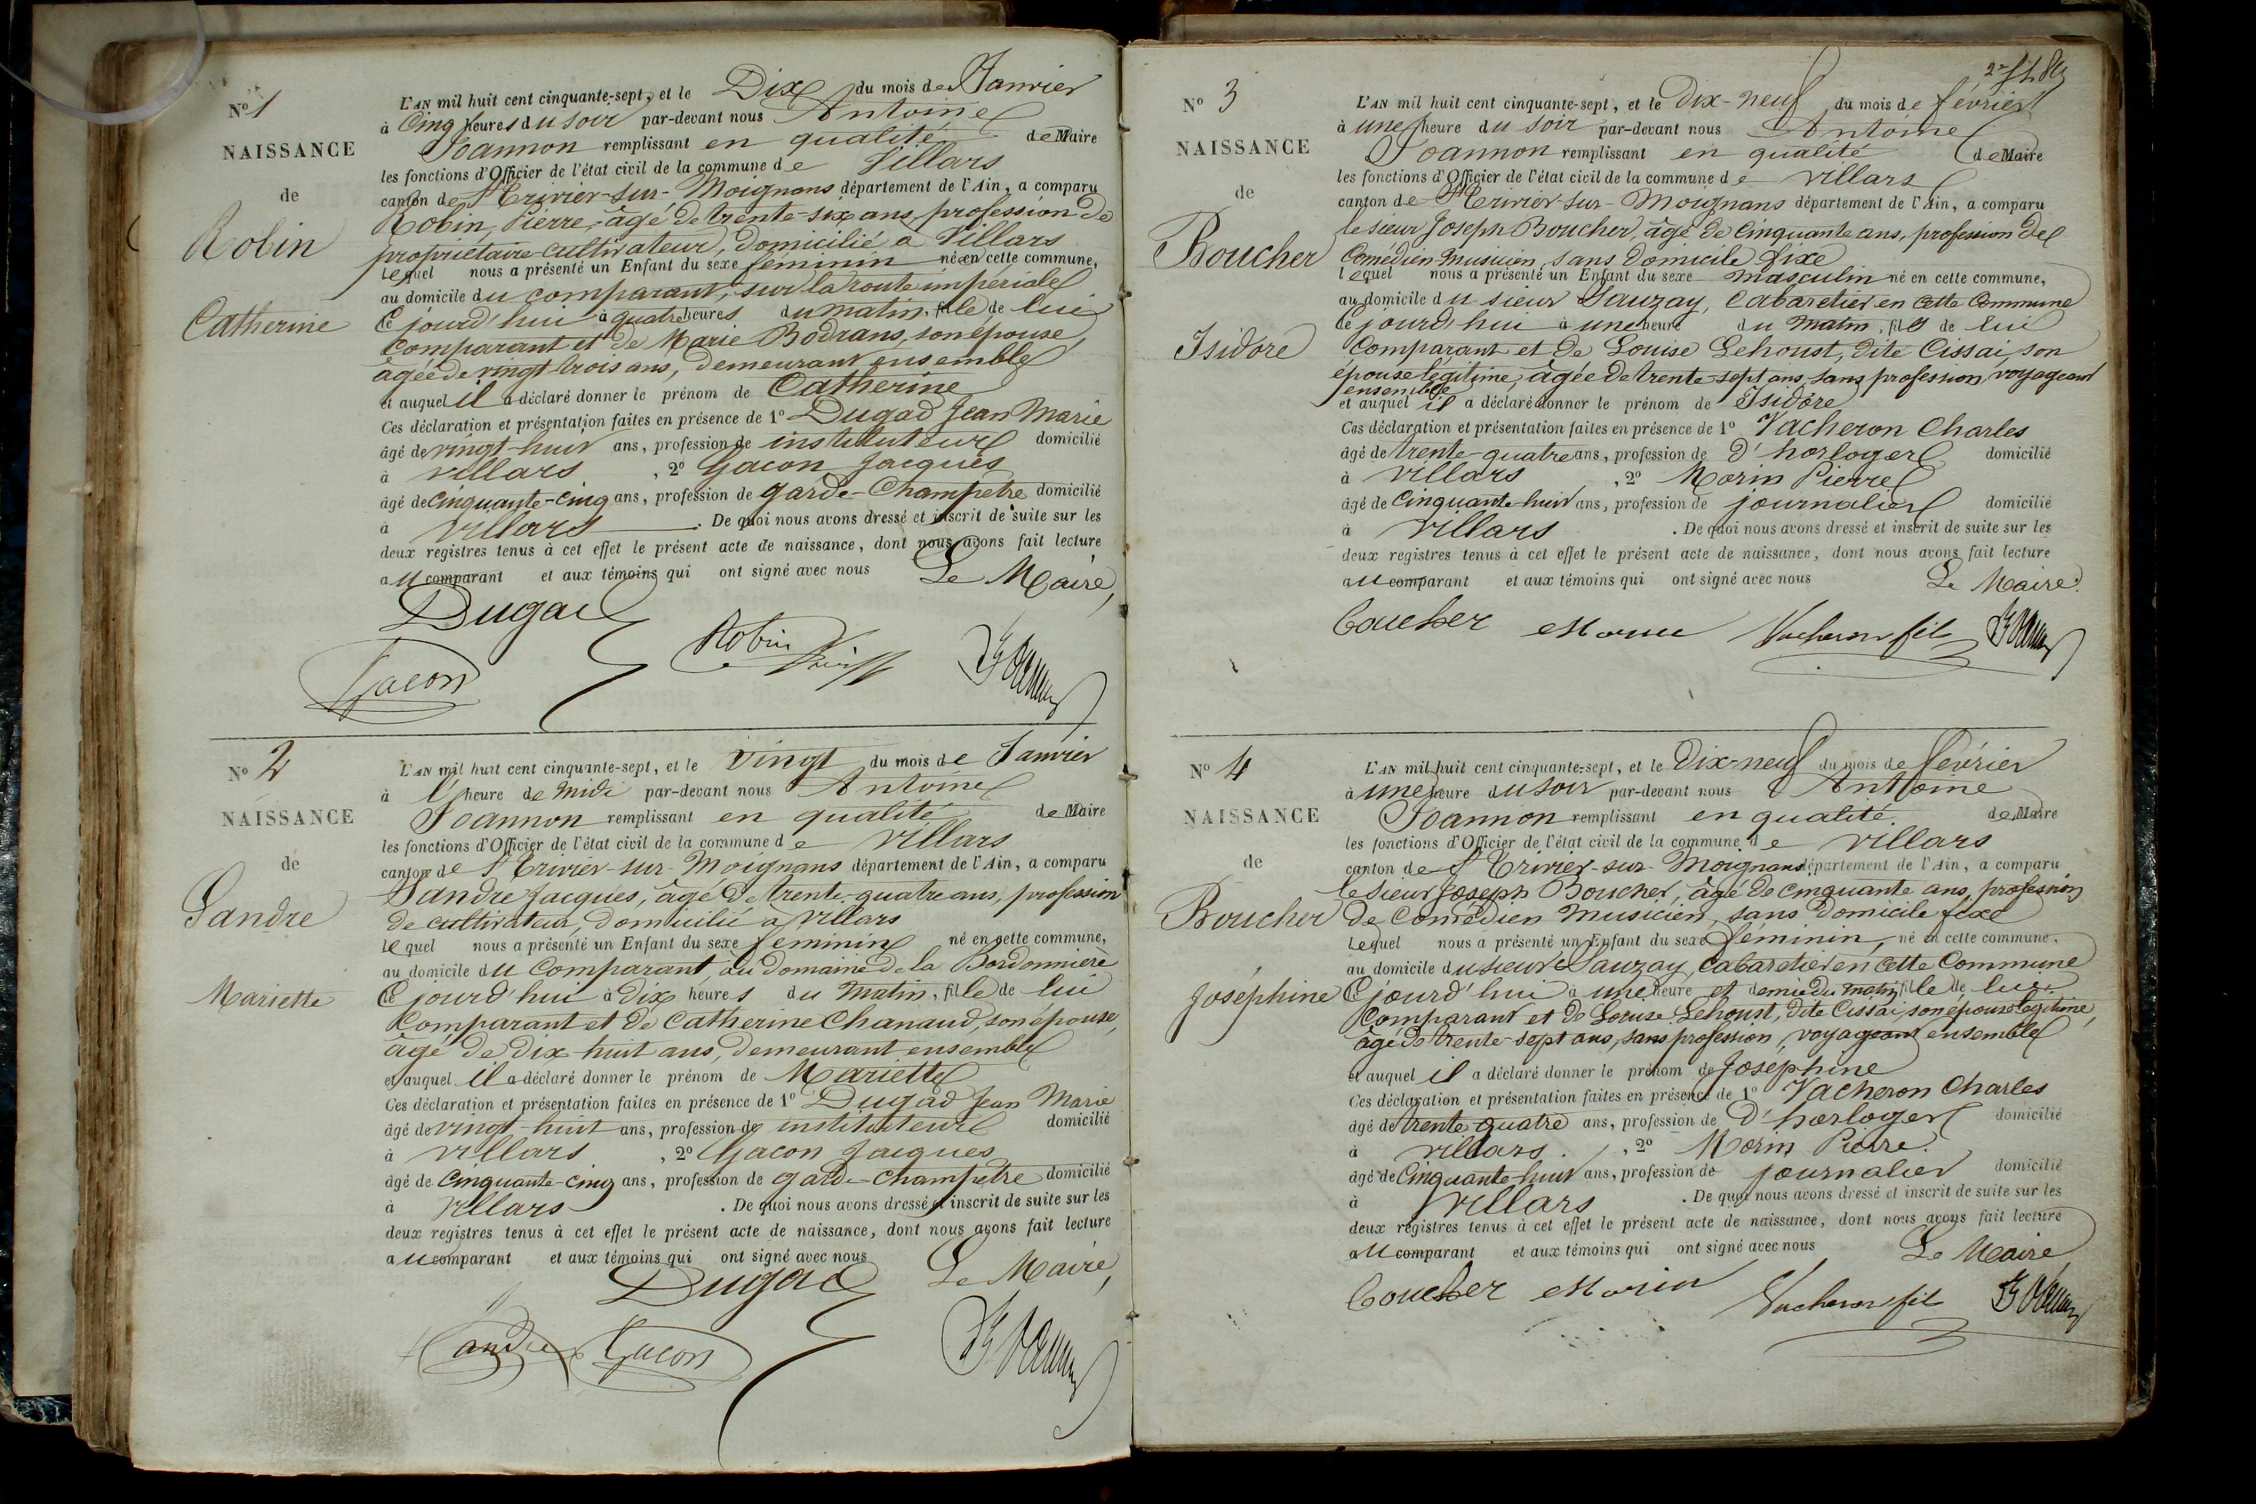 N° 1
NAISSANCE
de
Robin
Catherine
L'AN mil huit cent cinquante-sept, et le Dix du mois de Janvier
à Cinq heures du soir par-devant nous Antoine
Joannon remplissant en qualité de Maire
les fonctions d'Officier de l'état civil de la commune de Villars
canton de St Trivier-sur-Moignans département de l'Ain, a comparu
Robin, Pierre, âgé de trente-six ans, profession de
propriétaire-cultivateur, domicilié à Villars
lequel nous a présenté un Enfant du sexe féminin né en cette commune,
au domicile du comparant, sur la route impériale
Ce jourd'hui à quatre heures du matin, fille de lui
Comparant et de Marie Bodrans, son épouse,
âgée de vingt trois ans, demeurant ensemble
et auquel il a déclaré donner le prénom de Catherine
Ces déclaration et présentation faites en présence de 1° Dugad Jean Marie
âgé de vingt-huit ans, profession de instituteur domicilié
à villars , 2° Gacon Jacques
âgé de cinquante-cinq ans, profession de garde-Champêtre domicilié
à villars . De quoi nous avons dressé et inscrit de suite sur les
deux registres tenus à cet effet le présent acte de naissance, dont nous avons fait lecture
au comparant et aux témoins qui ont signé avec nous Le Maire,
Dugad
Robin
Gacon
N° 2
NAISSANCE
de
Sandre
Mariette
L'AN mil huit cent cinquante-sept, et le vingt du mois de Janvier
à l' heure de midi par-devant nous Antoine
Joannon remplissant en qualité de Maire
les fonctions d'Officier de l'état civil de la commune de Villars
canton de St Trivier-sur-Moignans département de l'Ain, a comparu
Sandre Jacques, âgé de trente-quatre ans, profession
de cultivateur, domicilié à Villars
lequel nous a présenté un Enfant du sexe féminin né en cette commune,
au domicile du Comparant, au domaine de la Bordonnière
Ce jourd'hui à Dix heures du matin, fille de lui
Comparant et de Catherine Chanaud, son épouse,
âgé de dix-huit ans, demeurant ensemble
et auquel il a déclaré donner le prénom de Mariette
Ces déclaration et présentation faites en présence de 1° Dugad Jean Marie
âgé de vingt-huit ans, profession de instituteur domicilié
à villars , 2° Gacon Jacques
âgé de cinquante-cinq ans, profession de garde-champêtre domicilié
à villars . De quoi nous avons dressé et inscrit de suite sur les
deux registres tenus à cet effet le présent acte de naissance, dont nous avons fait lecture
au comparant et aux témoins qui ont signé avec nous
Dugad Le Maire,
Sandre Gacon
N° 3
NAISSANCE
de
Boucher
Isidore
L'AN mil huit cent cinquante-sept, et le Dix-neuf du mois de février
à une heure du soir par-devant nous Antoine
Joannon remplissant en qualité de Maire
les fonctions d'Officier de l'état civil de la commune de villars
canton de St Trivier-sur-Moignans département de l'Ain, a comparu
le sieur Joseph Boucher, âgé de Cinquante ans, profession de
Comédien Musicien, sans domicile fixe
lequel nous a présenté un Enfant du sexe masculin né en cette commune,
au domicile du sieur Sauzay, Cabaretier en cette Commune
Ce jourd'hui à une heure du matin, fils de lui
Comparant et de Louise Lehoust, dite Cissai, son
épouse légitime, âgée de trente-sept ans, sans profession, voyageant
ensemble
et auquel il a déclaré donner le prénom de Isidore
Ces déclaration et présentation faites en présence de 1° Vacheron Charles
âgé de trente-quatre ans, profession de d'horloger domicilié
à villars , 2° Morin Pierre
âgé de cinquante-huit ans, profession de journalier domicilié
à Villars . De quoi nous avons dressé et inscrit de suite sur les
deux registres tenus à cet effet le présent acte de naissance, dont nous avons fait lecture
au comparant et aux témoins qui ont signé avec nous Le Maire.
Boucher Morin Vacheron fils
N° 4
NAISSANCE
de
Boucher
Joséphine
L'AN mil huit cent cinquante-sept, et le Dix-neuf du mois de février
à une heure du soir par-devant nous Antoine
Joannon remplissant en qualité. de Maire
les fonctions d'Officier de l'état civil de la commune de villars
canton de St Trivier-sur-Moignans département de l'Ain, a comparu
le sieur Joseph Boucher, âgé de cinquante ans, profession
de Comédien Musicien, sans domicile fixe
lequel nous a présenté un Enfant du sexe féminin, né en cette commune,
au domicile du sieur Sauzay, Cabaretier en cette Commune
Ce jourd'hui à une heure et demie du matin, fille de lui
Comparant et de Louise Lehoust, dite Cissai, son épouse légitime,
âgé de trente-sept ans, sans profession, voyageant ensemble
et auquel il a déclaré donner le prénom de Joséphine
Ces déclaration et présentation faites en présence de 1° Vacheron Charles
âgé de trente quatre ans, profession de d'horloger domicilié
à villars. , 2° Morin Pierre.
âgé de Cinquante-huit ans, profession de journalier domicilié
à Villars . De quoi nous avons dressé et inscrit de suite sur les
deux registres tenus à cet effet le présent acte de naissance, dont nous avons fait lecture
au comparant et aux témoins qui ont signé avec nous Le Maire
Boucher Morin Vacheron fils